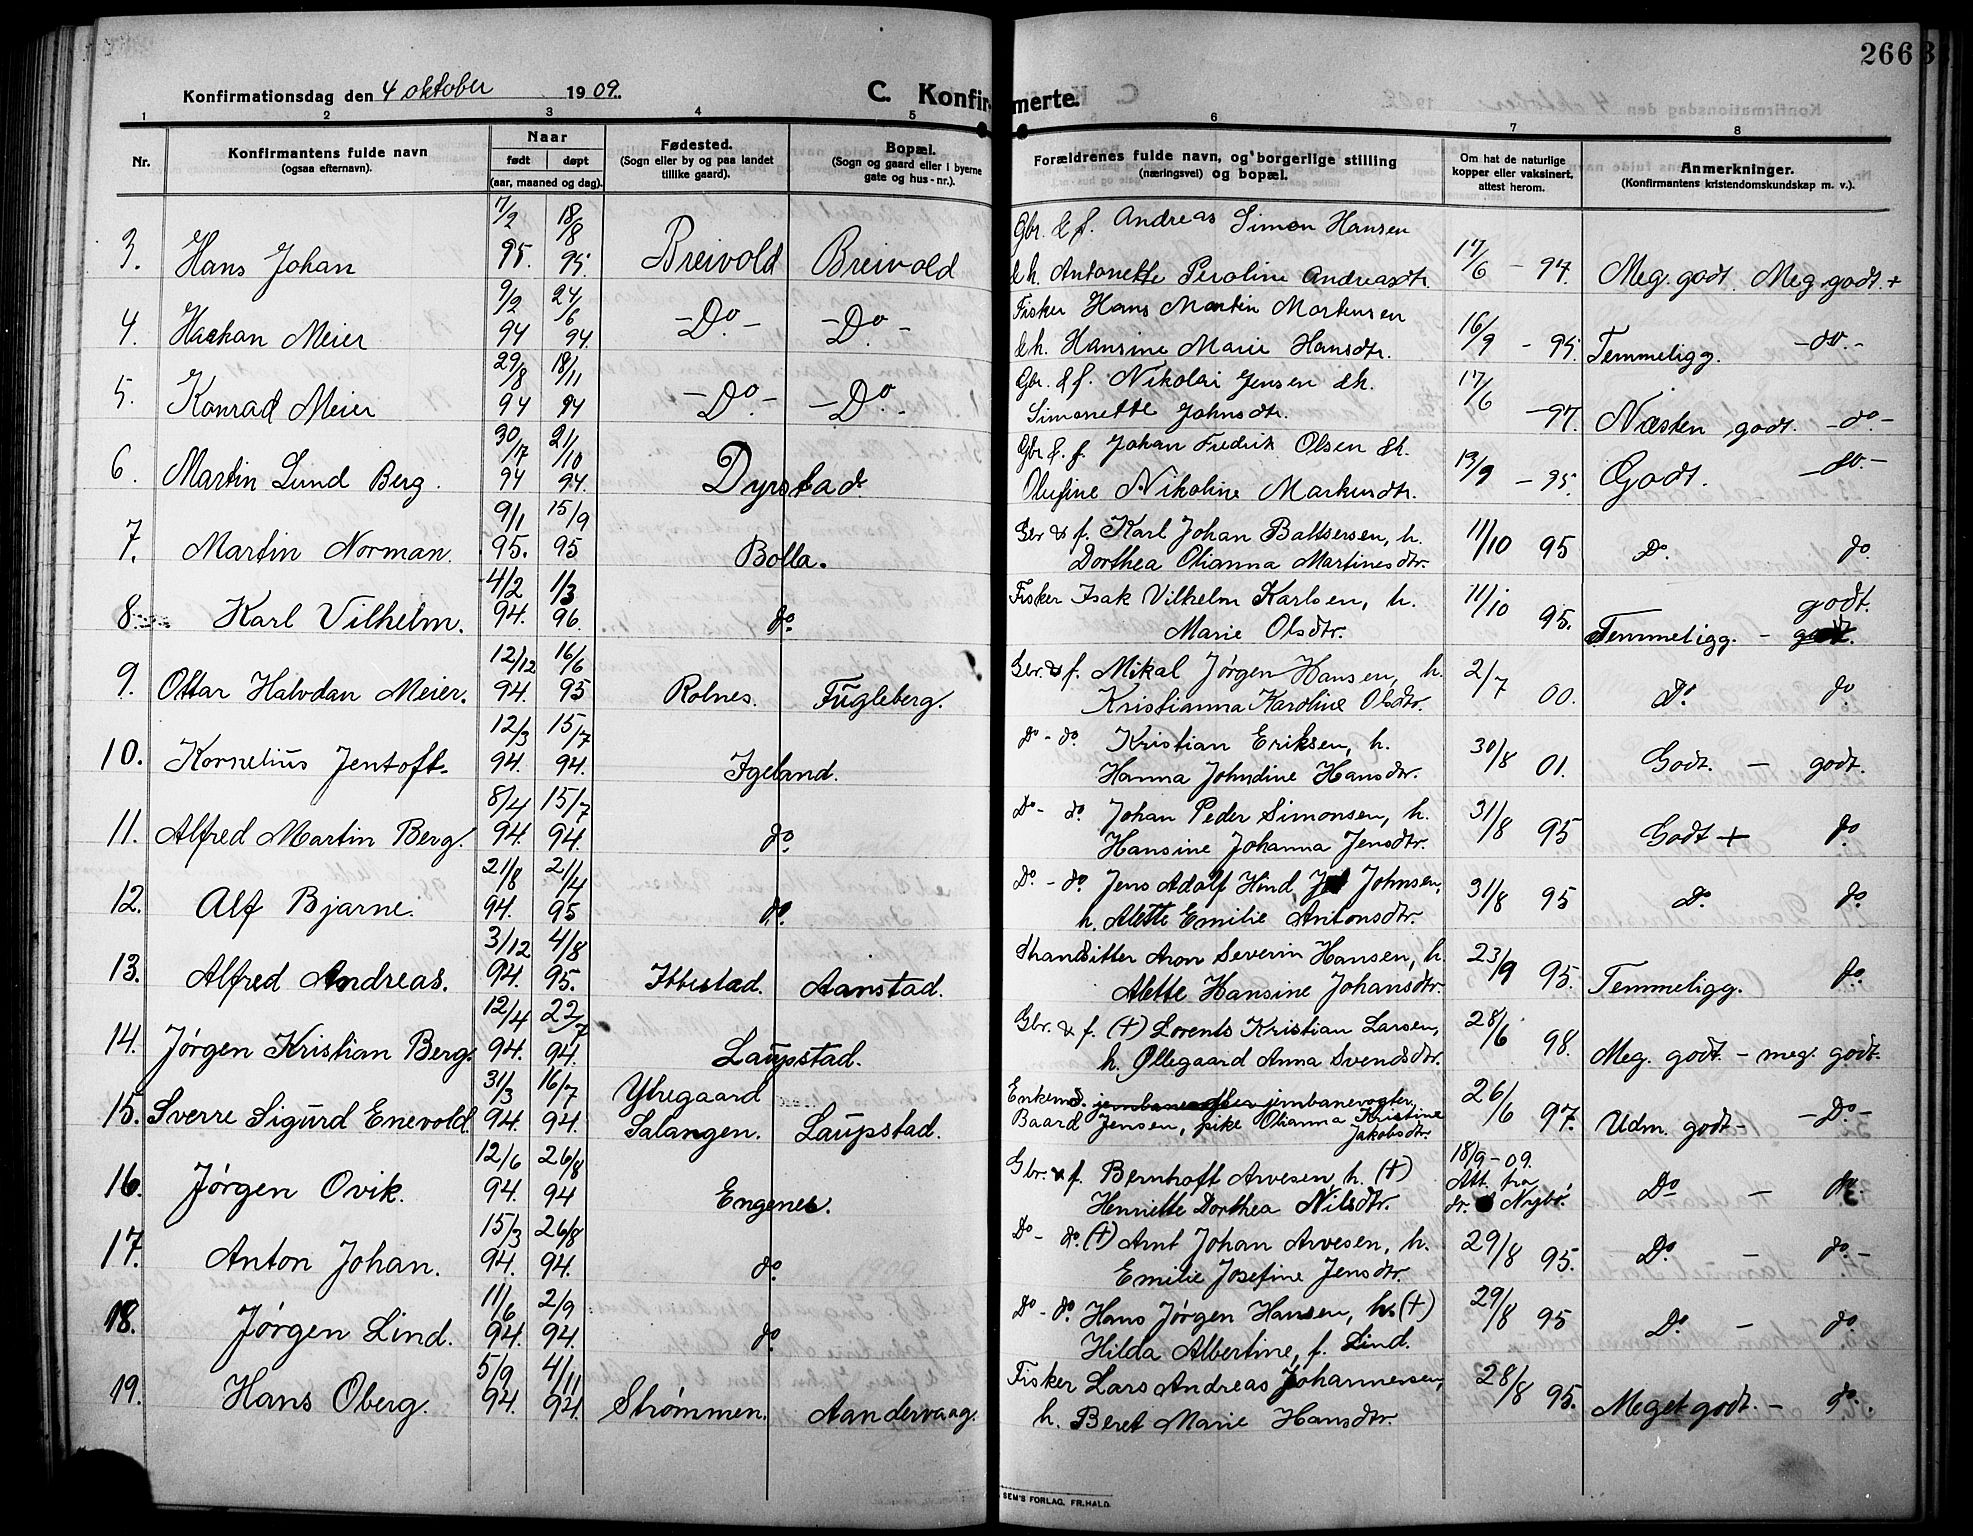 266
Konfirmationsdag den 4 oktober 1909.
C. Konfirmerte.
1 2 3 4 5 6 7 8
Nr.
Konfirmantens fulde navn
(ogsaa efternavn).
Naar
født døpt
(aar, maaned og dag).
Fødested.
(Sogn eller by og paa landet
tillike gaard).
Bopæl.
(Sogn og gaard eller i byerne
gate og hus-nr.).
Forældrenes fulde navn, og borgerlige stilling
(næringsvei) og bopæl.
Om hat de naturlige
kopper eller vaksinert,
attest herom.
Anmerkninger.
(Konfirmantens kristendomskundskap m. v.).
7/2 18/8 Gbr. & f. Andreas Simon Hansen
3. Hans Johan 95. 95. Breivold Breivold &h. Antonette Peroline Andreasdtr. 17/6 - 97. Meg. godt. Meg. godt. +
9/2 24/6 Fisker Hans Martin Martensen
4. Haakan Meier 94 94. -Do- -Do.- &h. Hansine Marie Hansdtr. 16/9 - 95. Temmeligg. -do.-
29/8 18/11 Gbr. & f. Nikolai Jensen &h.
5. Konrad Meier 94 94 -Do.- -Do.- Simonette Johnsdtr. 17/6 -97. Næsten godt. -do-
30/17 21/10 Gbr. & f. Johan Fredrik Olsen &h.
6. Martin Lund Berg. 94 94. Dyrstad. Olufine Nikoline Markusdtr. 13/9 - 95. Godt. -do.-
9/1 15/9 Gbr & f. Karl Johan Baltsersen, h.
7. Martin Norman. 95. 95 Bolla. Dorthea Olianna Martinesdtr. 11/10 95 Do. do.
4/2 1/3 Fisker Isak Vilhelm Karlsen, h. godt.
8. Karl Vilhelm. 94. 96. do. Marie Olsdtr. 11/10 95. Temmeligg. - godt.
12/12 16/6 Gbr. & f. Mikal Jørgen Hansen, h.
9. Ottar Halvdan Meier. 94. 95 Rolnes. Fugleberg. Kristianna Karoline Olsdtr. 2/7 00. Do. do.
12/3 15/7 Do - do. Kristian Eriksen, h.
10. Kornelius Jentoft. 94. 94. Igeland. Hanna Johndine Hansdtr. 30/8 01. Godt. - godt.
8/4 15/7 Do - do. Johan Peder Simonsen, h.
11. Alfred Martin Berg. 94. 94. do. Hansine Johanna Jensdtr. 31/8 95 Godt + do.
21/8 21/4 Do. - do. Jens Adolf Hind Johnsen,
12. Alf Bjarne. 94. 95 do. h. Alette Emilie Antonsdtr. 31/8 95 Do. do.
3/12 4/8 Strandsitter Aron Severin Hansen, h.
13. Alfred Andreas. 94. 95. Ibbestad. Aanstad. Alette Hansine Johansdtr. 23/9 95. Temmeligg. do.
12/4 22/7 Gbr. & f. (+) Lorents Kristian Larsen,
14. Jørgen Kristian Berg. 94. 94. Laupstad. h. Ollegaard Anna Svendsdtr. 28/6 98. Meg. godt. - meg. godt.
31/3 16/7 Ytregaard Enkemd. jernbanevogter
15. Sverre Sigurd Enevold. 94. 94. Salangen. Laupstad. Baard Jensen, pike Olianna Kristine Jakobsdtr. 26/6 97. Udm. godt - -Do-
12/6 26/8 Gbr. & f. Bernhoft Arvesen, h. (+) 18/9-09.
16. Jørgen Ovik. 94. 94 Engenes. Henriette Dorthea Nilsdtr. Att. fra dr. Nybø. Do - do.
15/3 26/8 Do - do. (+) Arnt Johan Arvesen, h.
17. Anton Johan. 94. 94. do. Emilie Josefine Jensdtr. 29/8 95. Do. - do.-
11/6 2/9 Do - do. Hans Jørgen Hansen, h. (+)
18. Jørgen Lind. 94. 94. do. Hilda Albertine, f. Lind. 29/8 95 Do. - do.
5/9 4/11 Fisker Lars Andreas Johannessen,
19. Hans Oberg. 94. 94. Strømmen. Aandervaag. h. Beret Marie Hansdtr. 28/8 95. Meget godt. - do.
SEM'S FORLAG, FR.HALD.